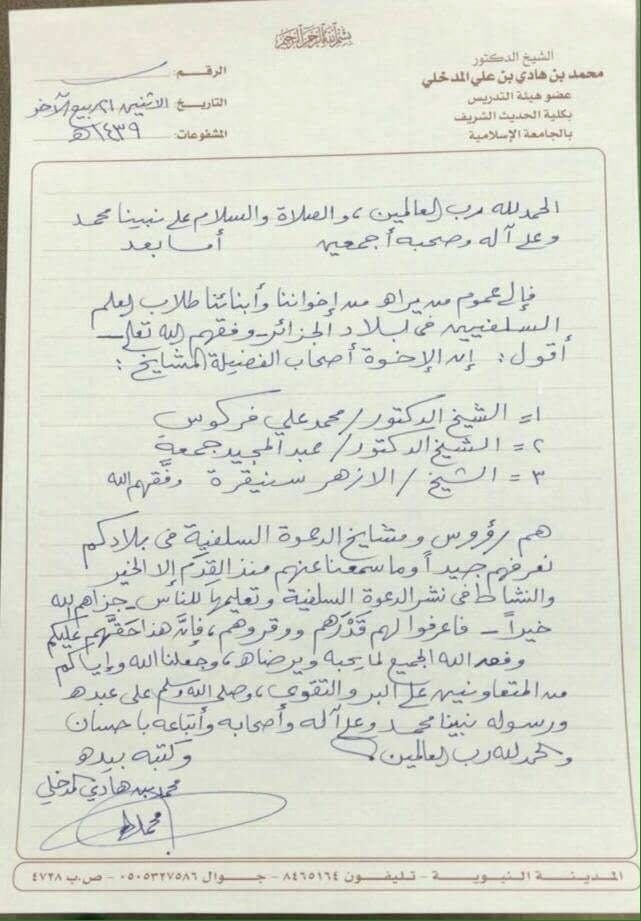 بسم الله الرحمن الرحيم
الشيخ الدكتور
محمد بن هادي بن علي المدخلي
عضو هيئة التدريس
بكلية الحديث الشريف
بالجامعة الإسلامية
الرقم:
التاريخ: الاثنين ربيع الآخر
المشفوعات: ١٤٣٩هـ
الحمد لله رب العالمين، والصلاة والسلام على نبينا محمد
وعلى آله وصحبه أجمعين أما بعد
فإلى عموم من يراه من إخواننا وأبنائنا طلاب العلم
السلفيين في بلاد الجزائر - وفقهم الله تعالى -
أقول: إن الإخوة أصحاب الفضيلة المشايخ:
١= الشيخ الدكتور/ محمد علي فركوس
٢= الشيخ الدكتور/ عبد المجيد جمعة
٣= الشيخ/ الازهر سنيقرة وفقهم الله
هم رؤوس ومشايخ الدعوة السلفية في بلادكم
نعرفهم جيداً وما سمعنا عنهم منذ القِدَم إلا الخير
والنشاط في نشر الدعوة السلفية وتعليمها للناس - جزاهم الله
خيراً - فاعرفوا لهم قَدْرَهم ووقروهم، فإنَّ هذا حَقّهم عليكم
وفق الله الجميع لما يحبه ويرضاه، وجعلنا الله وإياكم
من المتعاونين على البر والتقوى، وصلى الله وسلم على عبده
ورسوله نبينا محمد وعلى آله وأصحابه وأتباعه بإحسان
والحمد لله رب العالمين وكتبه بيده
محمد بن هادي المدخلي
المدينة النبوية - تليفون ٨٤٦٥١٦٤ - جوال ٠٥٠٥٣٢٧٥٨٦ - ص.ب ٤٧٢٨